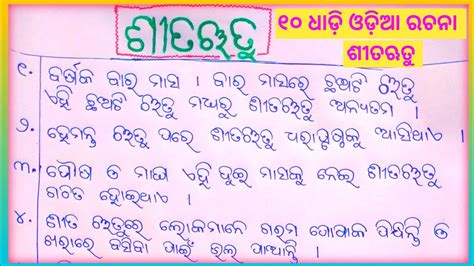 ଶୀତଋତୁ
୧୦ ଧାଡ଼ି ଓଡ଼ିଆ ରଚନା
ଶୀତଋତୁ
୧. ବର୍ଷକ ବାର ମାସ । ବାର ମାସରେ ଛଅଟି ଋତୁ
ଏହି ଛଅଟି ଋତୁ ମଧ୍ୟରୁ ଶୀତଋତୁ ଅନ୍ୟତମ ।
୨. ହେମନ୍ତ ଋତୁ ପରେ ଶୀତଋତୁ ଧରାପୃଷ୍ଠକୁ ଆସିଥାଏ ।
୩. ପୌଷ ଓ ମାଘ ଏହି ଦୁଇ ମାସକୁ ନେଇ ଶୀତଋତୁ
ଗଠିତ ହୋଇଥାଏ ।
୪. ଶୀତ ଋତୁରେ ଲୋକମାନେ ଗରମ ପୋଷାକ ପିନ୍ଧନ୍ତି ଓ
ଖରାରେ ବସିବା ପାଇଁ ଭଲ ପାଆନ୍ତି ।